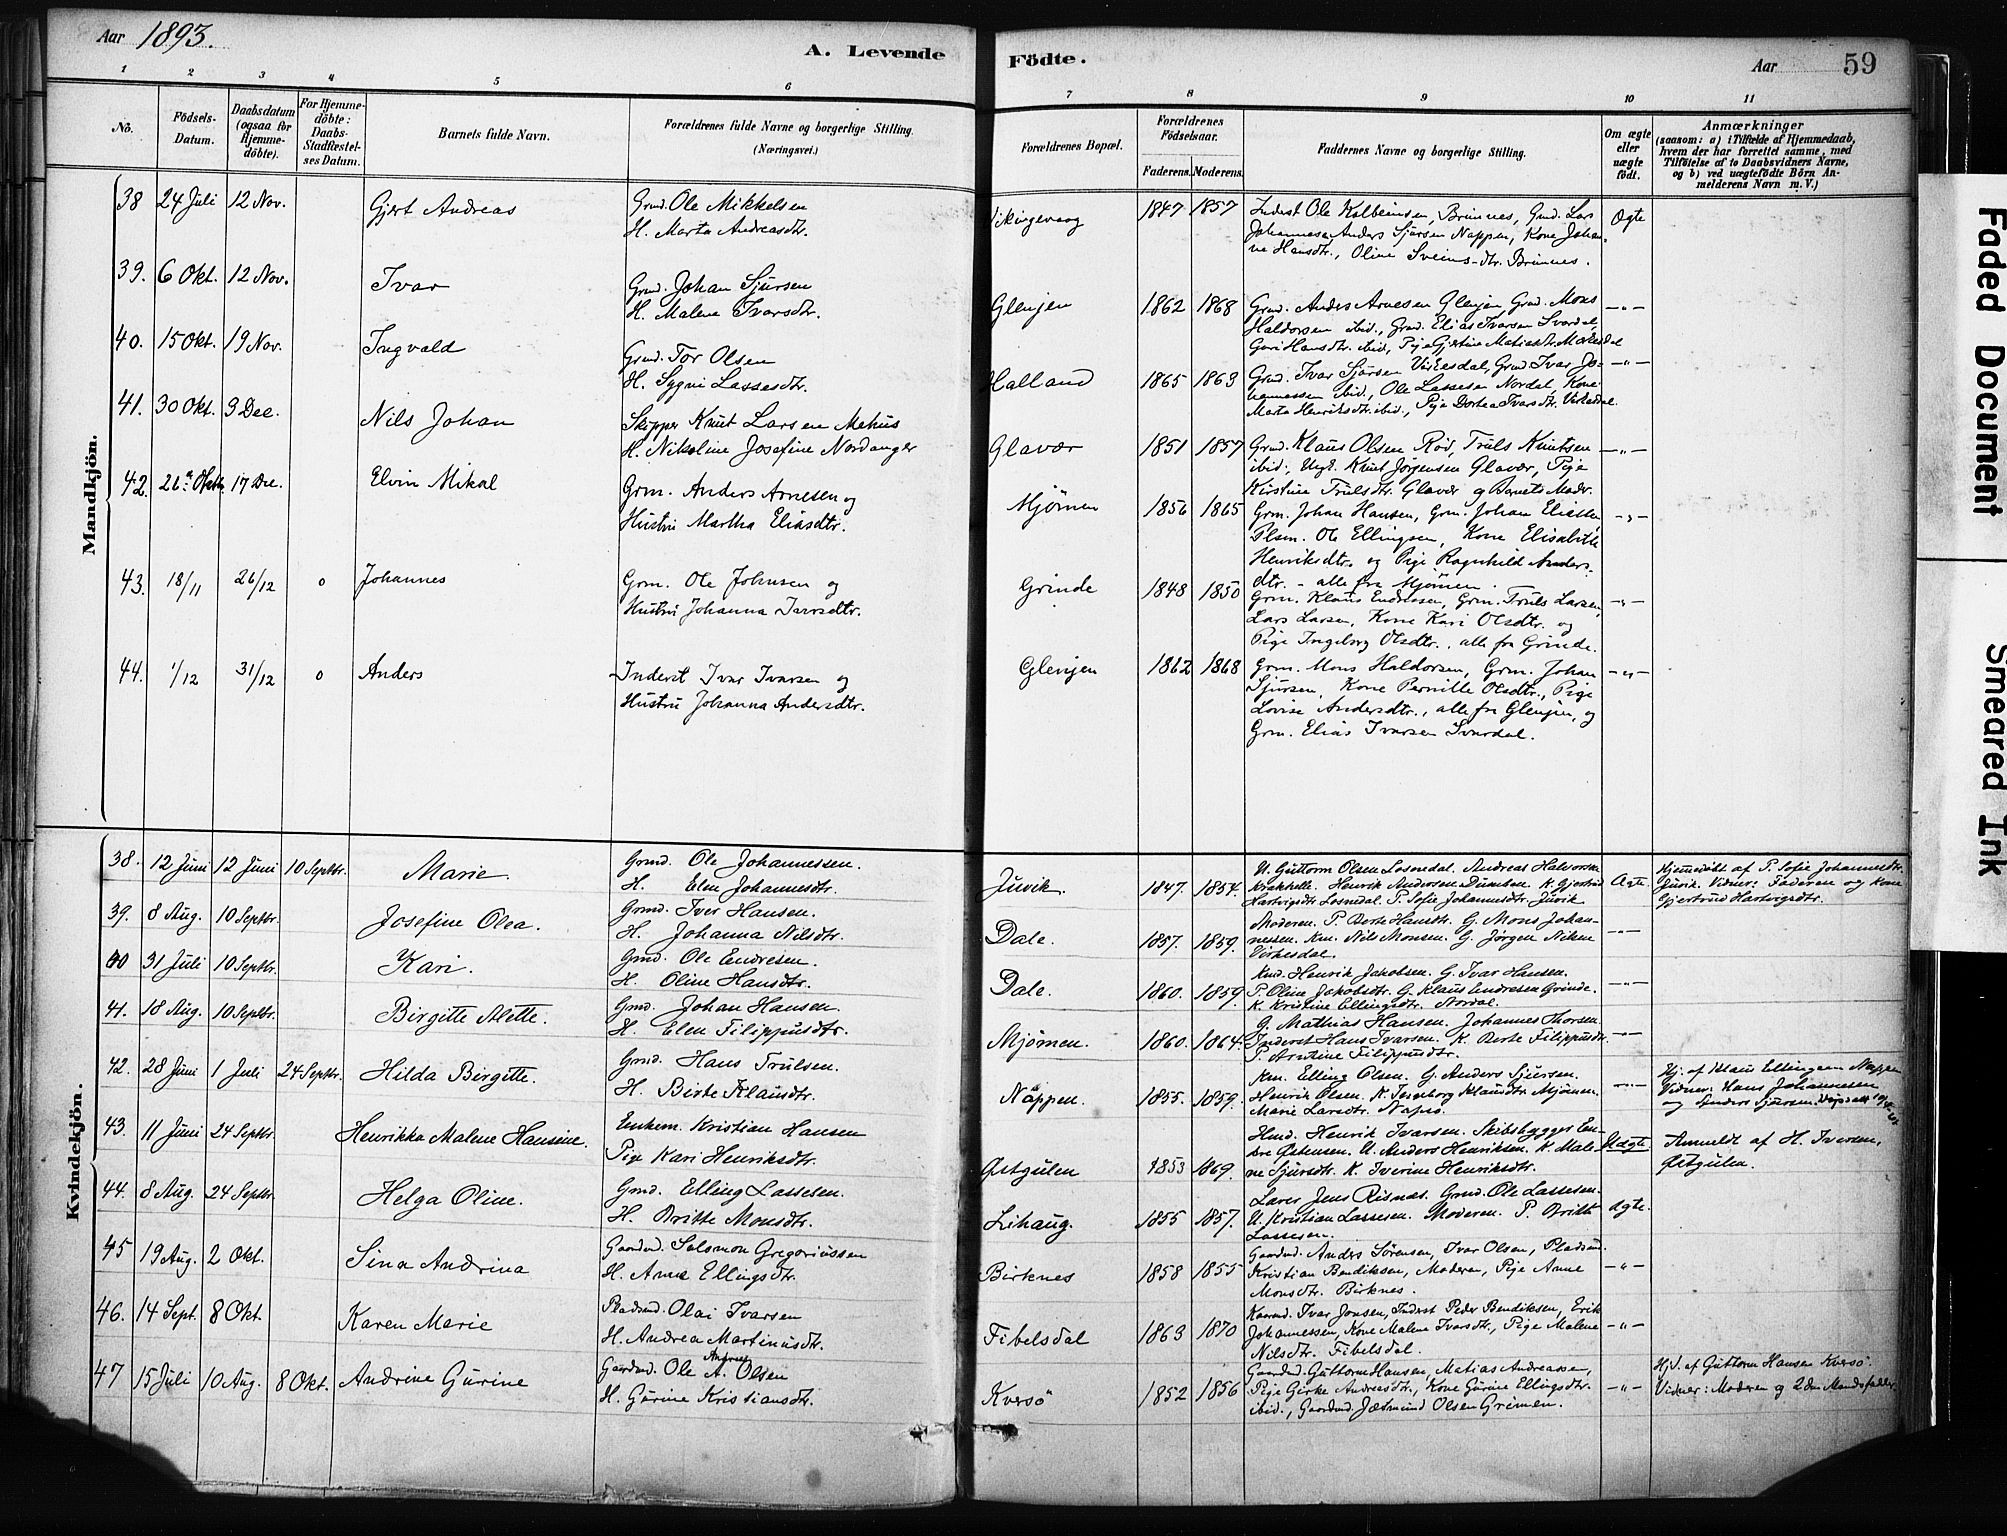 Aar 1893.
A. Levende
Födte.
Aar
59
1 2 3 4 5 6
7 8 9 10 11
No.
Födsels-
Datum.
Daabsdatum
(ogsaa for
Hjemme-
döbte).
For Hjemme-
döbte:
Daabs-
Stadfæstel-
ses Datum.
Barnets fulde Navn.
Forældrenes fulde Navne og borgerlige Stilling.
(Næringsvei.)
Forældrenes Bopæl.
Forældrenes
Födselsaar.
Faderens. Moderens.
Faddernes Navne og borgerlige Stilling.
Om ægte
eller
uægte
födt.
Anmærkninger
(saasom: a) i Tilfælde af Hjemmedaab,
hvem der har forrettet samme, med
Tilföielse af to Daabsvidners Navne,
og b) ved uægtefödte Börn An-
melderens Navn m. V.)
Mandkjön.
38 24 Juli 12 Nov. Gjert Andreas
Grmd. Ole Mikkelsen
H. Marta Andreasdtr.
Vikingevaag 1847 1857
Inderst Ole Kolbeinsen Brünnes, Gmd. Lars
Johannesen Anders Sjursen Nappen, Kone Johan-
ne Hansdtr., Oline Sveins-dtr. Brünnes.
Ægte
39. 6 Okt. 12 Nov. Ivar
Grmd. Johan Sjursen
H. Malene Ivarsdtr.
Glenjen 1862 1868
Grmd. Anders Arnesen Glenjen Grmd. Mons
Haldorsen ibid., Grmd. Elias Ivarsen Svardal,
Guri Hansdtr. ibid, Pige Gjertine Matiasdtr.
—„—
40. 15 Okt. 19 Nov. Ingvald
Grmd. Tor Olsen
H. Sygni Lassesdtr.
Halland 1865 1863
Grmd. Ivar Sjursen Virkesdal, Grmd. Ivar Jo-
hannessen ibid., Ole Lassesen Nordal, Kone
Marta Henriksdtr. ibid., Pige Dortea Ivarsdtr. Virkesdal.
—„—
41. 30 Okt. 3 Dec. Nils Johan
Skipper Knut Larsen Mehus
H. Nikoline Josefine Nordanger
Glavær 1851 1857
Grmd. Klaus Olsen Röd, Truls Knutsen
ibid., Ungk. Knut Jørgensen Glavær, Pige
Kirstine Trulsdtr. Glavær og Barnets Moder.
—„—
42. 17 Dec. Elvin Mikal
Grm. Anders Arnesen og
Hustru Martha Eliasdtr.
Mjömen 1856 1865
Grm. Johan Hansen, Grm. Johan Eliassen
Plsm. Ole Ellingsen, Kone Elisabeth
Henriksdtr. og Pige Ragnhild Anders-
dtr. – alle fra Mjömen.
—„—
43. 18/11 26/12 o Johannes
Grm. Ole Johnsen og
Hustru Johanna Ivarsdtr.
Grinde 1848 1850
Grm. Klaus Endresen, Grm. Truls Larsen,
Lars Larsen, Kone Kari Olsdtr. og
Pige Ingeborg Olsdtr., alle fra Grinde.
—„—
44. 1/12 31/12 o Anders
Inderst Ivar Ivarsen og
Hustru Johanna Andersdtr.
Glenjen 1862 1868
Grm. Mons Haldorsen, Grm. Johan
Sjursen, Kone Pernille Olsdtr., Pige
Lovise Andersdtr., alle fra Glenjen, og
Grm. Elias Ivarsen Svardal.
—„—
Kvindekjön.
38. 12 Juni 12 Juni 10 Septbr. Marie.
Grmd. Ole Johannessen.
H. Elen Johannesdtr.
Juvik. 1847. 1854.
U. Guttorm Olsen Losnedal. Andreas Halvorsen
Krakhelle. Henrik Andersen Dumben. K. Gjertrud
Hartvigsdtr. Losnedal. P. Sofie Johannesdtr. Juvik
Ægte.
Hjemmedöbt af P. Sofie Johannesdtr.
Juvik. Vidner: Faderen og Kone
Gjertrud Hartvigsdtr.
39. 8 Aug. 10 Septbr. Josefine Olea.
Grmd. Iver Hansen.
H. Johanna Nilsdtr.
Dale. 1857. 1859.
Moderen. P. Berte Hansdtr. G. Mons Johan-
nessen. Km. Nils Monsen. G. Jørgen Nilsen
Virkesdal.
—„—
40 31 Juli 10 Septbr. Kari.
Gmd. Ole Endresen.
H. Oline Hansdtr.
Dale. 1860. 1859.
Kmd. Henrik Jakobsen. G. Ivar Hansen.
P. Oline Jakobsdtr. G. Klaus Endresen Grinde.
K. Kristine Ellingsdtr. Nordal.
—„—
41. 18 Aug. 10 Septbr. Birgitte Alette.
Gmd. Johan Hansen.
H. Elen Filippusdtr.
Mjømen. 1860. 1864.
G. Mathias Hansen. Johannes Thorsen
Inderst Hans Ivarsen. K. Berte Filippusdtr.
P. Arntine Filippusdtr.
—„—
42. 28 Juni 1 Juli 24 Septbr. Hilda Birgitte.
Gmd. Hans Trulsen.
H. Birte Klausdtr.
Nappen. 1855. 1859.
Km. Elling Olsen. G. Anders Sjursen.
Henrik Olsen. K. Ingeborg Klausdtr. Mjömen.
Marie Larsdtr.
—„—
Hj. af Klaus Ellingsen Nappen
Vidner: Hans Johannesen
og Anders Sjursen.
43. 11 Juni 24 Septbr. Henrikka Malene Hansine.
Enkem. Kristian Hansen
Pige Kari Henriksdtr.
Østgulen 1853 1869.
Hmd. Henrik Ivarsen. Skibsbygger En-
dre Østensen. U. Anders Henriksen. K. Male-
ne Sjursdtr. K. Iverine Henriksdtr.
Uægte
Anmeldt af H. Iversen,
Østgulen.
44. 8 Aug. 24 Septbr. Helga Oline.
Gmd. Elling Lassesen.
H. Britte Monsdtr.
Lihaug. 1855 1857.
Lærer Jens Risnæs. Grmd. Ole Lassesen.
U. Kristian Lassesen. Moderen. P. Britte
Lassesen.
Ægte.
45 19 Aug. 2 Okt. Sina Andrina
Gaardmd. Salomon Gregoriussen
H. Anna Ellingsdtr.
Birknes 1858 1855
Gaardmd. Anders Sörensen, Ivar Olsen, Pladsmd.
Kristian Bendiksen, Moderen, Pige Anne
Monsdtr. Birknes.
—„—
46. 14 Sept. 8 Okt. Karen Marie
Pladsmd. Olai Ivarsen
H. Andrea Martinusdtr.
Fibelsdal 1863 1870
Ivar Jonsen, Inderst Peder Bendiksen, Erik
Johannessen, Kone Malene Ivarsdtr., Pige Malene
Nilsdtr. Fibelsdal.
—„—
47 15 Juli 10 Aug. 8 Okt. Andrine Gurine
Gaardmd. Ole A. Olsen
H. Gurine Kristiansdtr.
Kversö 1852 1856
Gaardmd. Guttorm Hansen, Matias Andreassen,
Pige Girke Andreasdtr., Kone Gurine Ellingsdtr.
ibid., Gaardmd. Jetmund Olsen Grimen.
—„—
Hjd. af Guttorm Hansen Kversö.
Vidner: Moderen og 2den Mandsfadder
Faded Document
Smeared Ink